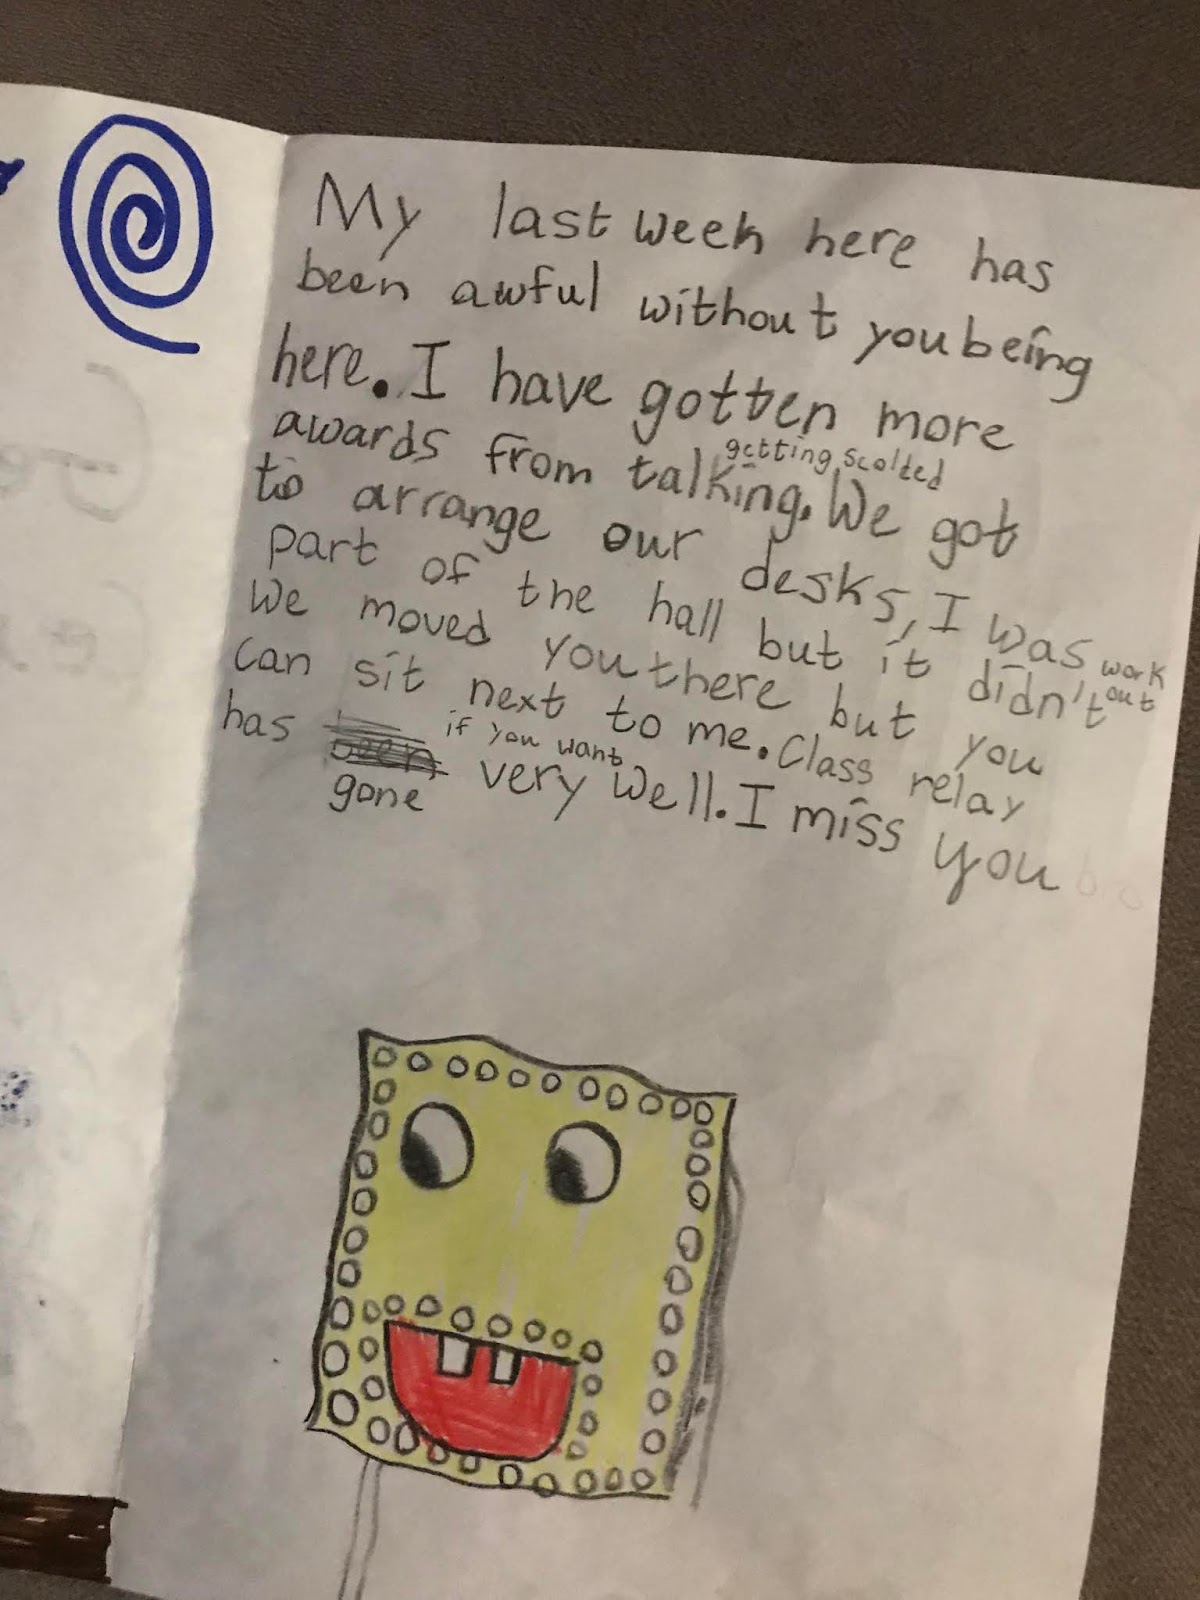 My last week here has
been awful without you being
here. I have gotten more
awards from talking. We got
getting scolded
to arrange our desks, I was
part of the hall but it didn't work out
We moved you there but you
can sit next to me. Class relay
if you want
has been very well. I miss you
gone